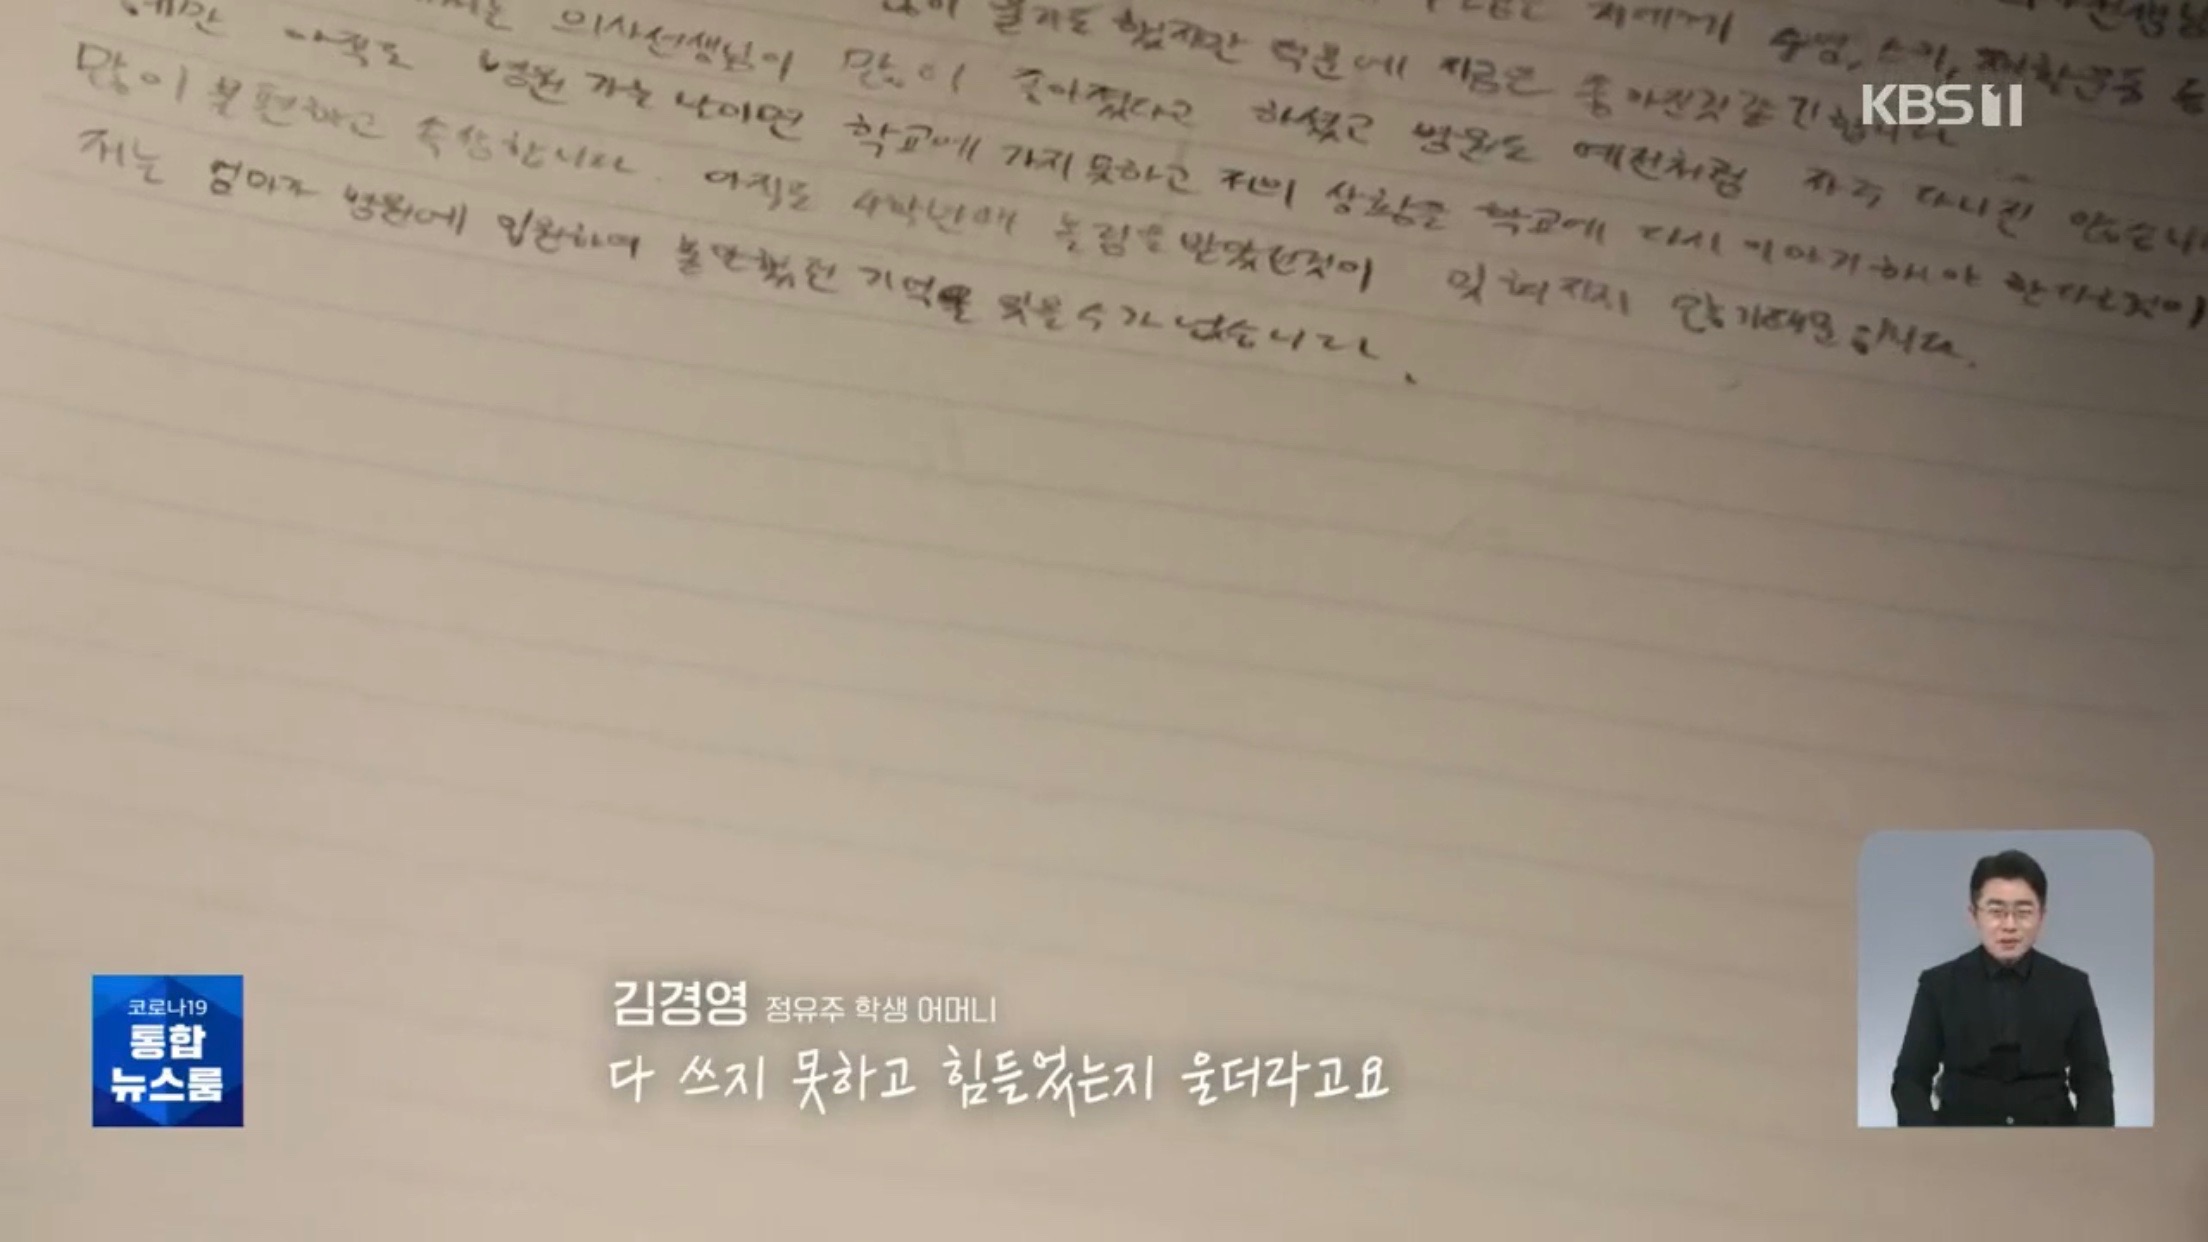 저에게 수영, 스키,
울기도 했지만 덕분에 지금은 좋아진것 같긴합니다
의사선생님이 많이 좋아졌다고 하셨고 병원도 예전처럼 자주 다니진 않습니
아직도 병원 가는 날이면 학교에 가지 못하고 저의 상황을 학교에 다시 이야기해야 한다는것이
많이 불편하고 속상합니다. 아직도 4학년때 놀림을 받았던것이 잊혀지지 않기때문입니다.
저는 엄마가 병원에 입원하여 불안했던 기억을 잊을수가 없습니다.
KBS 1
코로나19
통합
뉴스룸
김경영 정유주 학생 어머니
다 쓰지 못하고 힘들었는지 울더라고요